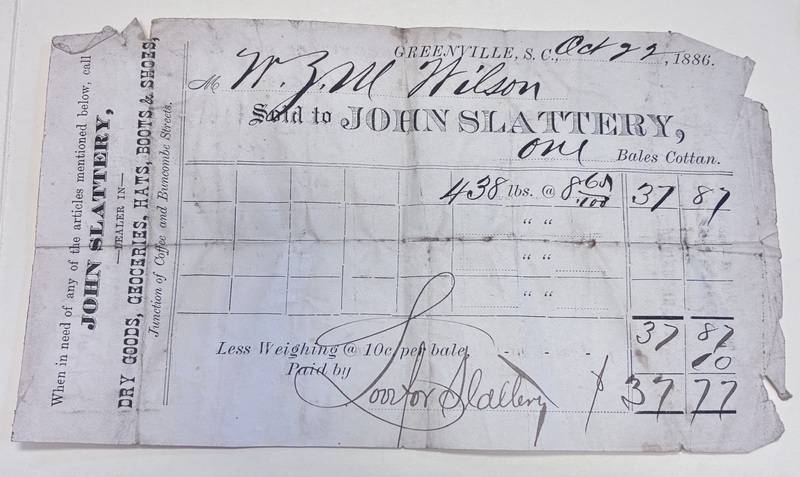 When in need of any of the articles mentioned below, call
JOHN SLATTERY,
—DEALER IN—
DRY GOODS, GROCERIES, HATS, BOOTS & SHOES,
Junction of Coffee and Buncombe Streets.
GREENVILLE, S. C., Oct 22, 1886.
M W. Z. M Wilson
Sold to JOHN SLATTERY,
one Bales Cottan.
438 lbs. @ 8 /100 37 87
" "
" "
" "
37 87
Less Weighing @ 10c per bale, - - - - 10
Paid by Slattery $ 37 77